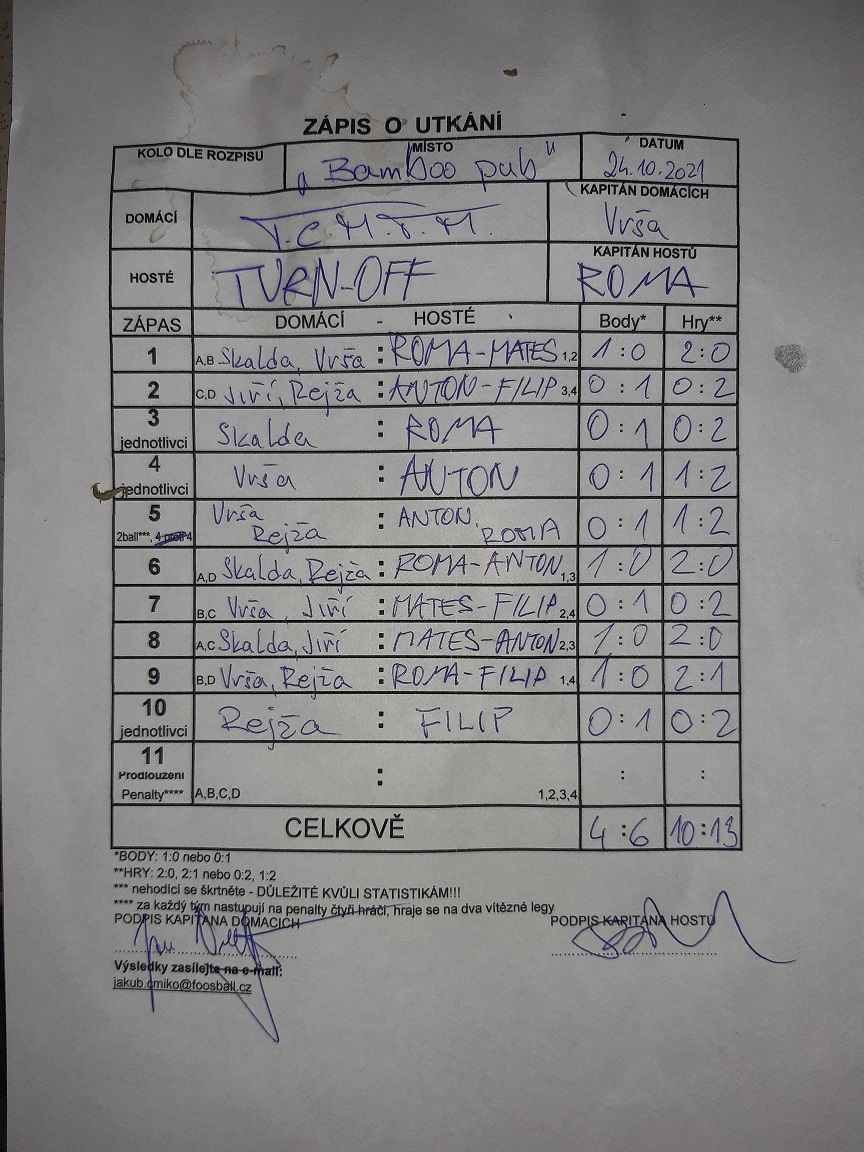 ZÁPIS O UTKÁNÍ
KOLO DLE ROZPISU MÍSTO DATUM
„Bamboo pub" 24.10.2021
DOMÁCÍ T.C.M.T.M. KAPITÁN DOMÁCÍCH
Vrša
HOSTÉ TURN-OFF KAPITÁN HOSTŮ
ROMA
ZÁPAS DOMÁCÍ - HOSTÉ Body* Hry**
1 A,B Skalda, Vrša : ROMA-MATES 1,2 1:0 2:0
2 C,D Jiří, Rejža : ANTON-FILIP 3,4 0:1 0:2
3 jednotlivci Skalda : ROMA 0:1 0:2
4 jednotlivci Vrša : ANTON 0:1 1:2
5 Vrša : ANTON, 0:1 1:2
2ball***, 4 proti 4 Rejža ROMA
6 A,D Skalda, Rejža : ROMA-ANTON 1,3 1:0 2:0
7 B,C Vrša, Jiří : MATES-FILIP 2,4 0:1 0:2
8 A,C Skalda, Jiří : MATES-ANTON 2,3 1:0 2:0
9 B,D Vrša, Rejža : ROMA-FILIP 1,4 1:0 2:1
10 jednotlivci Rejža : FILIP 0:1 0:2
11 : : :
Prodloužení
Penalty**** A,B,C,D 1,2,3,4
CELKOVĚ 4:6 10:13
*BODY: 1:0 nebo 0:1
**HRY: 2:0, 2:1 nebo 0:2, 1:2
*** nehodící se škrtněte - DŮLEŽITÉ KVŮLI STATISTIKÁM!!!
**** za každý tým nastupují na penalty čtyři hráči, hraje se na dva vítězné legy
PODPIS KAPITÁNA DOMÁCÍCH PODPIS KAPITÁNA HOSTŮ
Výsledky zasílejte na e-mail:
jakub.cmiko@foosball.cz